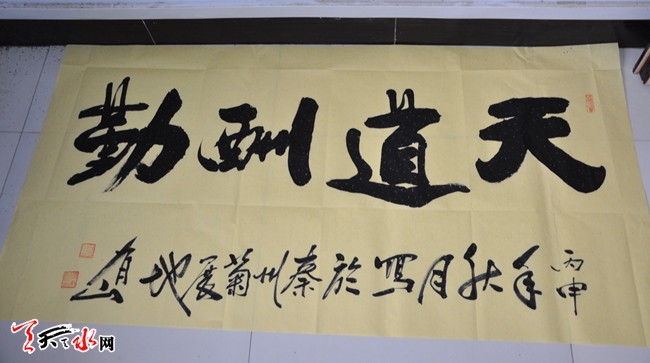 天道酬勤
丙申年秋月写於秦州菊展地
天天水网